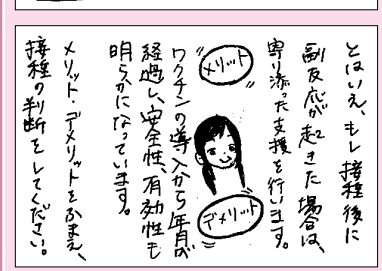 とはいえ、もし接種後に
副反応が起きた場合は、
寄り添った支援を行います。
メリット
デメリット
ワクチンの導入から年月が
経過し、安全性、有効性も
明らかになっています。
メリット・デメリットをふまえ、
接種の判断をしてください。